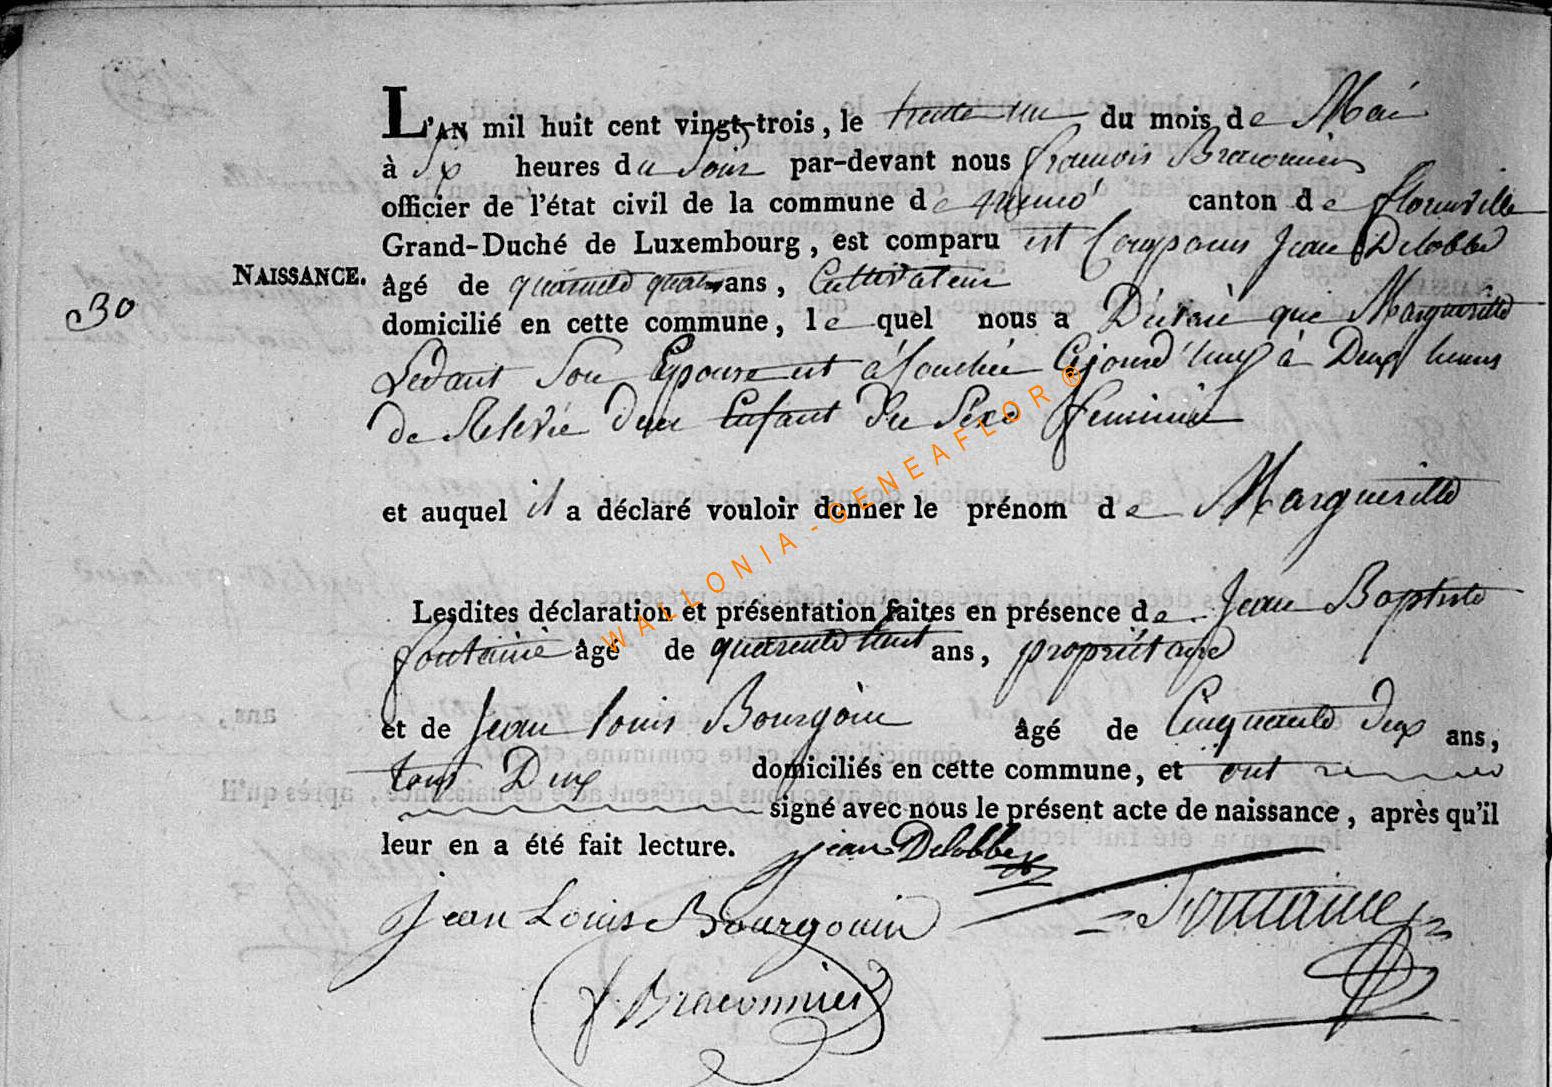 L'AN mil huit cent vingt-trois, le trente un du mois de Mai
à six heures du soir par-devant nous françois Braconnier
officier de l'état civil de la commune de canton de florenville
Grand-Duché de Luxembourg, est comparu est Comparus Jean Delobbe
NAISSANCE. âgé de quarante quatre ans, Cultivateur
30
domicilié en cette commune, le quel nous a Déclaré que Margueritte
Ledant Son Epouse est a couchée ce jourd'huy à Deux heures
de Relevée d'un Enfant du Sexe feminin
et auquel il a déclaré vouloir donner le prénom de Margueritte
Lesdites déclaration et présentation faites en présence de Jean Baptiste
fontaine âgé de quarante huit ans, propriétaire
et de Jean louis Bourgoin âgé de Cinquante deux ans,
tous Deux domiciliés en cette commune, et ont
signé avec nous le présent acte de naissance, après qu'il
leur en a été fait lecture. jean Delobbe
jean Louis Bourgouin Fontaine
f. Braconnier
WALLONIA-GENEAFLOR®